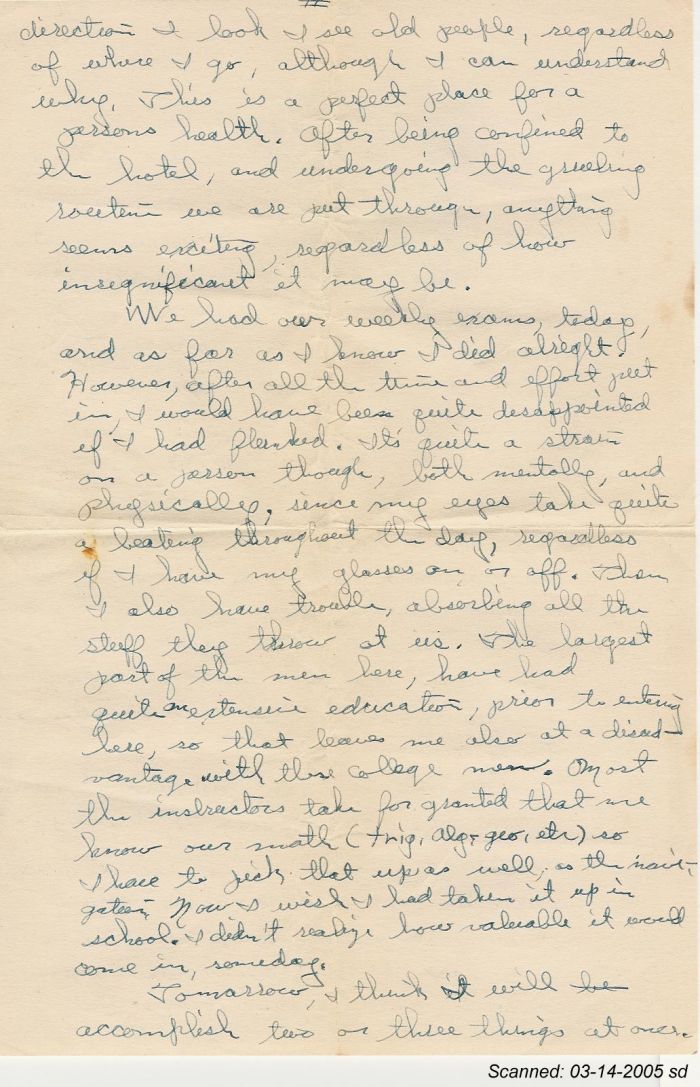 II
direction I look I see old people, regardless
of where I go, although I can understand
why. This is a perfect place for a
persons health. After being confined to
the hotel, and undergoing the grueling
routine we are put through, anything
seems exciting, regardless of how
insignificant it may be.
We had our weekly exams, today,
and as far as I know I did alright.
However, after all the time and effort put
in, I would have been quite disappointed
if I had flunked. Its quite a strain
on a person though, both mentally, and
physically, since my eyes take quite
a beating throughout the day, regardless
if I have my glasses on or off. Then
I also have trouble, absorbing all the
stuff they throw at us. The largest
part of the men here, have had
quite an extensive education, prior to entering
here, so that leaves me also at a disad-
vantage with these college men. Most
the instructors take for granted that we
know our math (trig, alg, geo, etc) so
I have to pick that up as well, as the navi-
gation. Now I wish I had taken it up in
school. I didn't realize how valuable it would
come in, someday.
Tomarrow, I think I will be
accomplish two or three things at once.
Scanned: 03-14-2005 sd